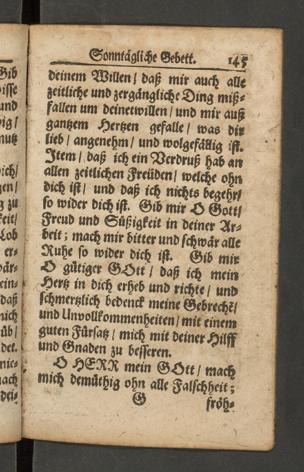 Sonntägliche Gebett. 145
deinem Willen / daß mir auch alle
zeitliche und zergängliche Ding miß-
fallen um deinetwillen / und mir auß
gantzem Hertzen gefalle / was dir
lieb / angenehm / und wolgefällig ist.
Item / daß ich ein Verdruß hab an
allen zeitlichen Freüden / welche ohn
dich ist / und daß ich nichts begehr /
so wider dich ist. Gib mir O Gott /
Freud und Süßigkeit in deiner Ar-
beit ; mach mir bitter und schwär alle
Ruhe so wider dich ist. Gib mir
O gütiger GOtt / daß ich mein
Hertz in dich erheb und richte / und
schmertzlich bedenck meine Gebrechē /
und Unvollkommenheiten / mit einem
guten Fürsatz / mich mit deiner Hilff
und Gnaden zu besseren.
O HERR mein GOtt / mach
mich demüthig ohn alle Falschheit ;
G fröh-